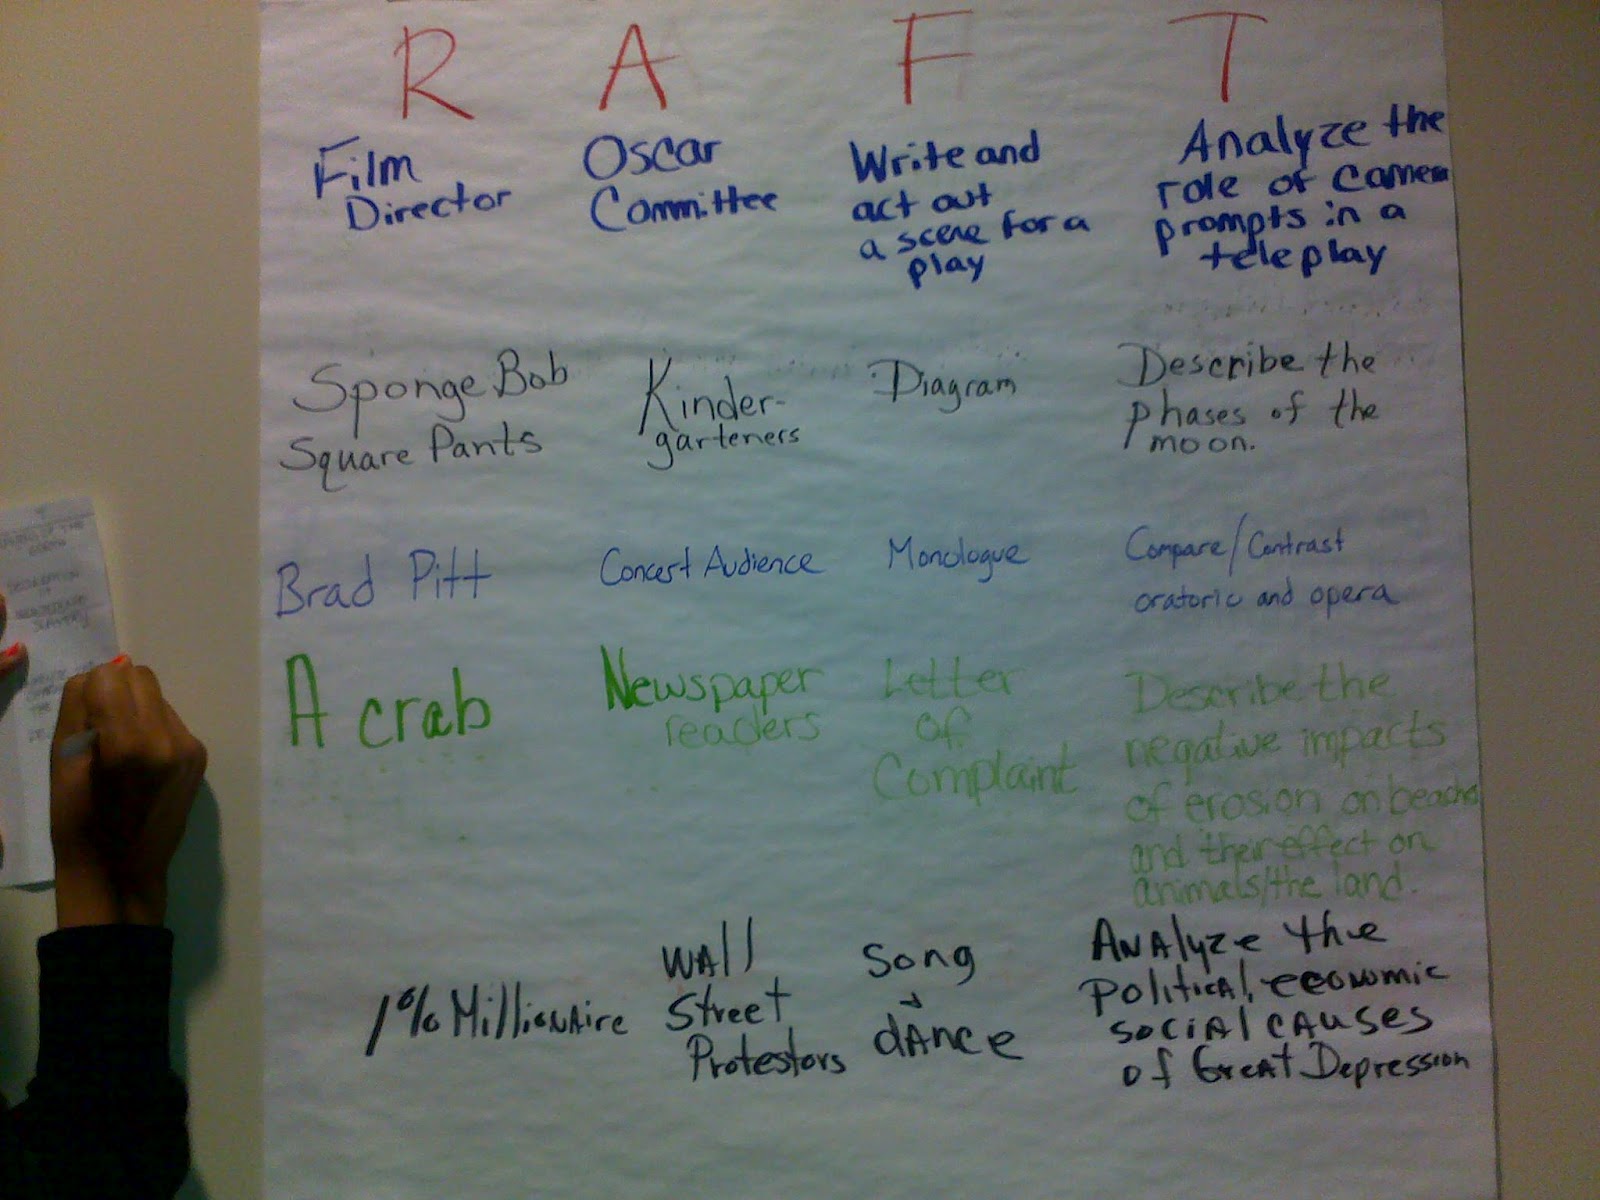 R A F T
Film
Director
Oscar
Committee
Write and
act out
a scene for a
play
Analyze the
role of camera
prompts in a
teleplay
Sponge Bob
Square Pants
Kinder-
garteners
Diagram
Describe the
phases of the
moon.
Brad Pitt
Concert Audience
Monologue
Compare/Contrast
oratoric and opera
A crab
Newspaper
readers
Letter
of
Complaint
Describe the
negative impacts
of erosion on beaches
and their effect on
animals/the land.
1% Millionaire
Wall
Street
Protestors
Song
+
dance
Analyze the
political, economic
social causes
of Great Depression